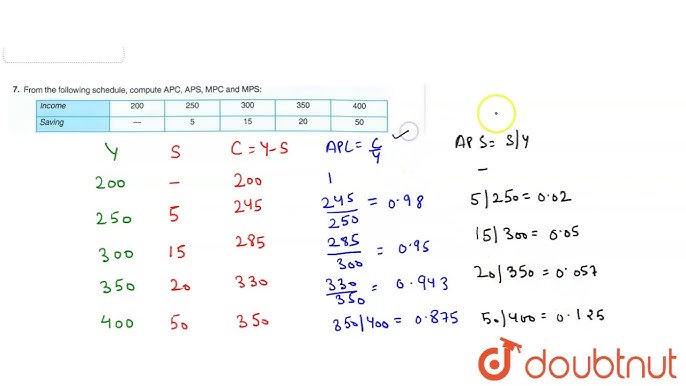 7. From the following schedule, compute APC, APS, MPC and MPS:
Income 200 250 300 350 400
Saving — 5 15 20 50
Y S C = Y-S APC = C/Y ✓ APS = S/Y
200 - 200 1 -
250 5 245 245/250 = 0.98 5/250 = 0.02
300 15 285 285/300 = 0.95 15/300 = 0.05
350 20 330 330/350 = 0.943 20/350 = 0.057
400 50 350 350/400 = 0.875 50/400 = 0.125
doubtnut